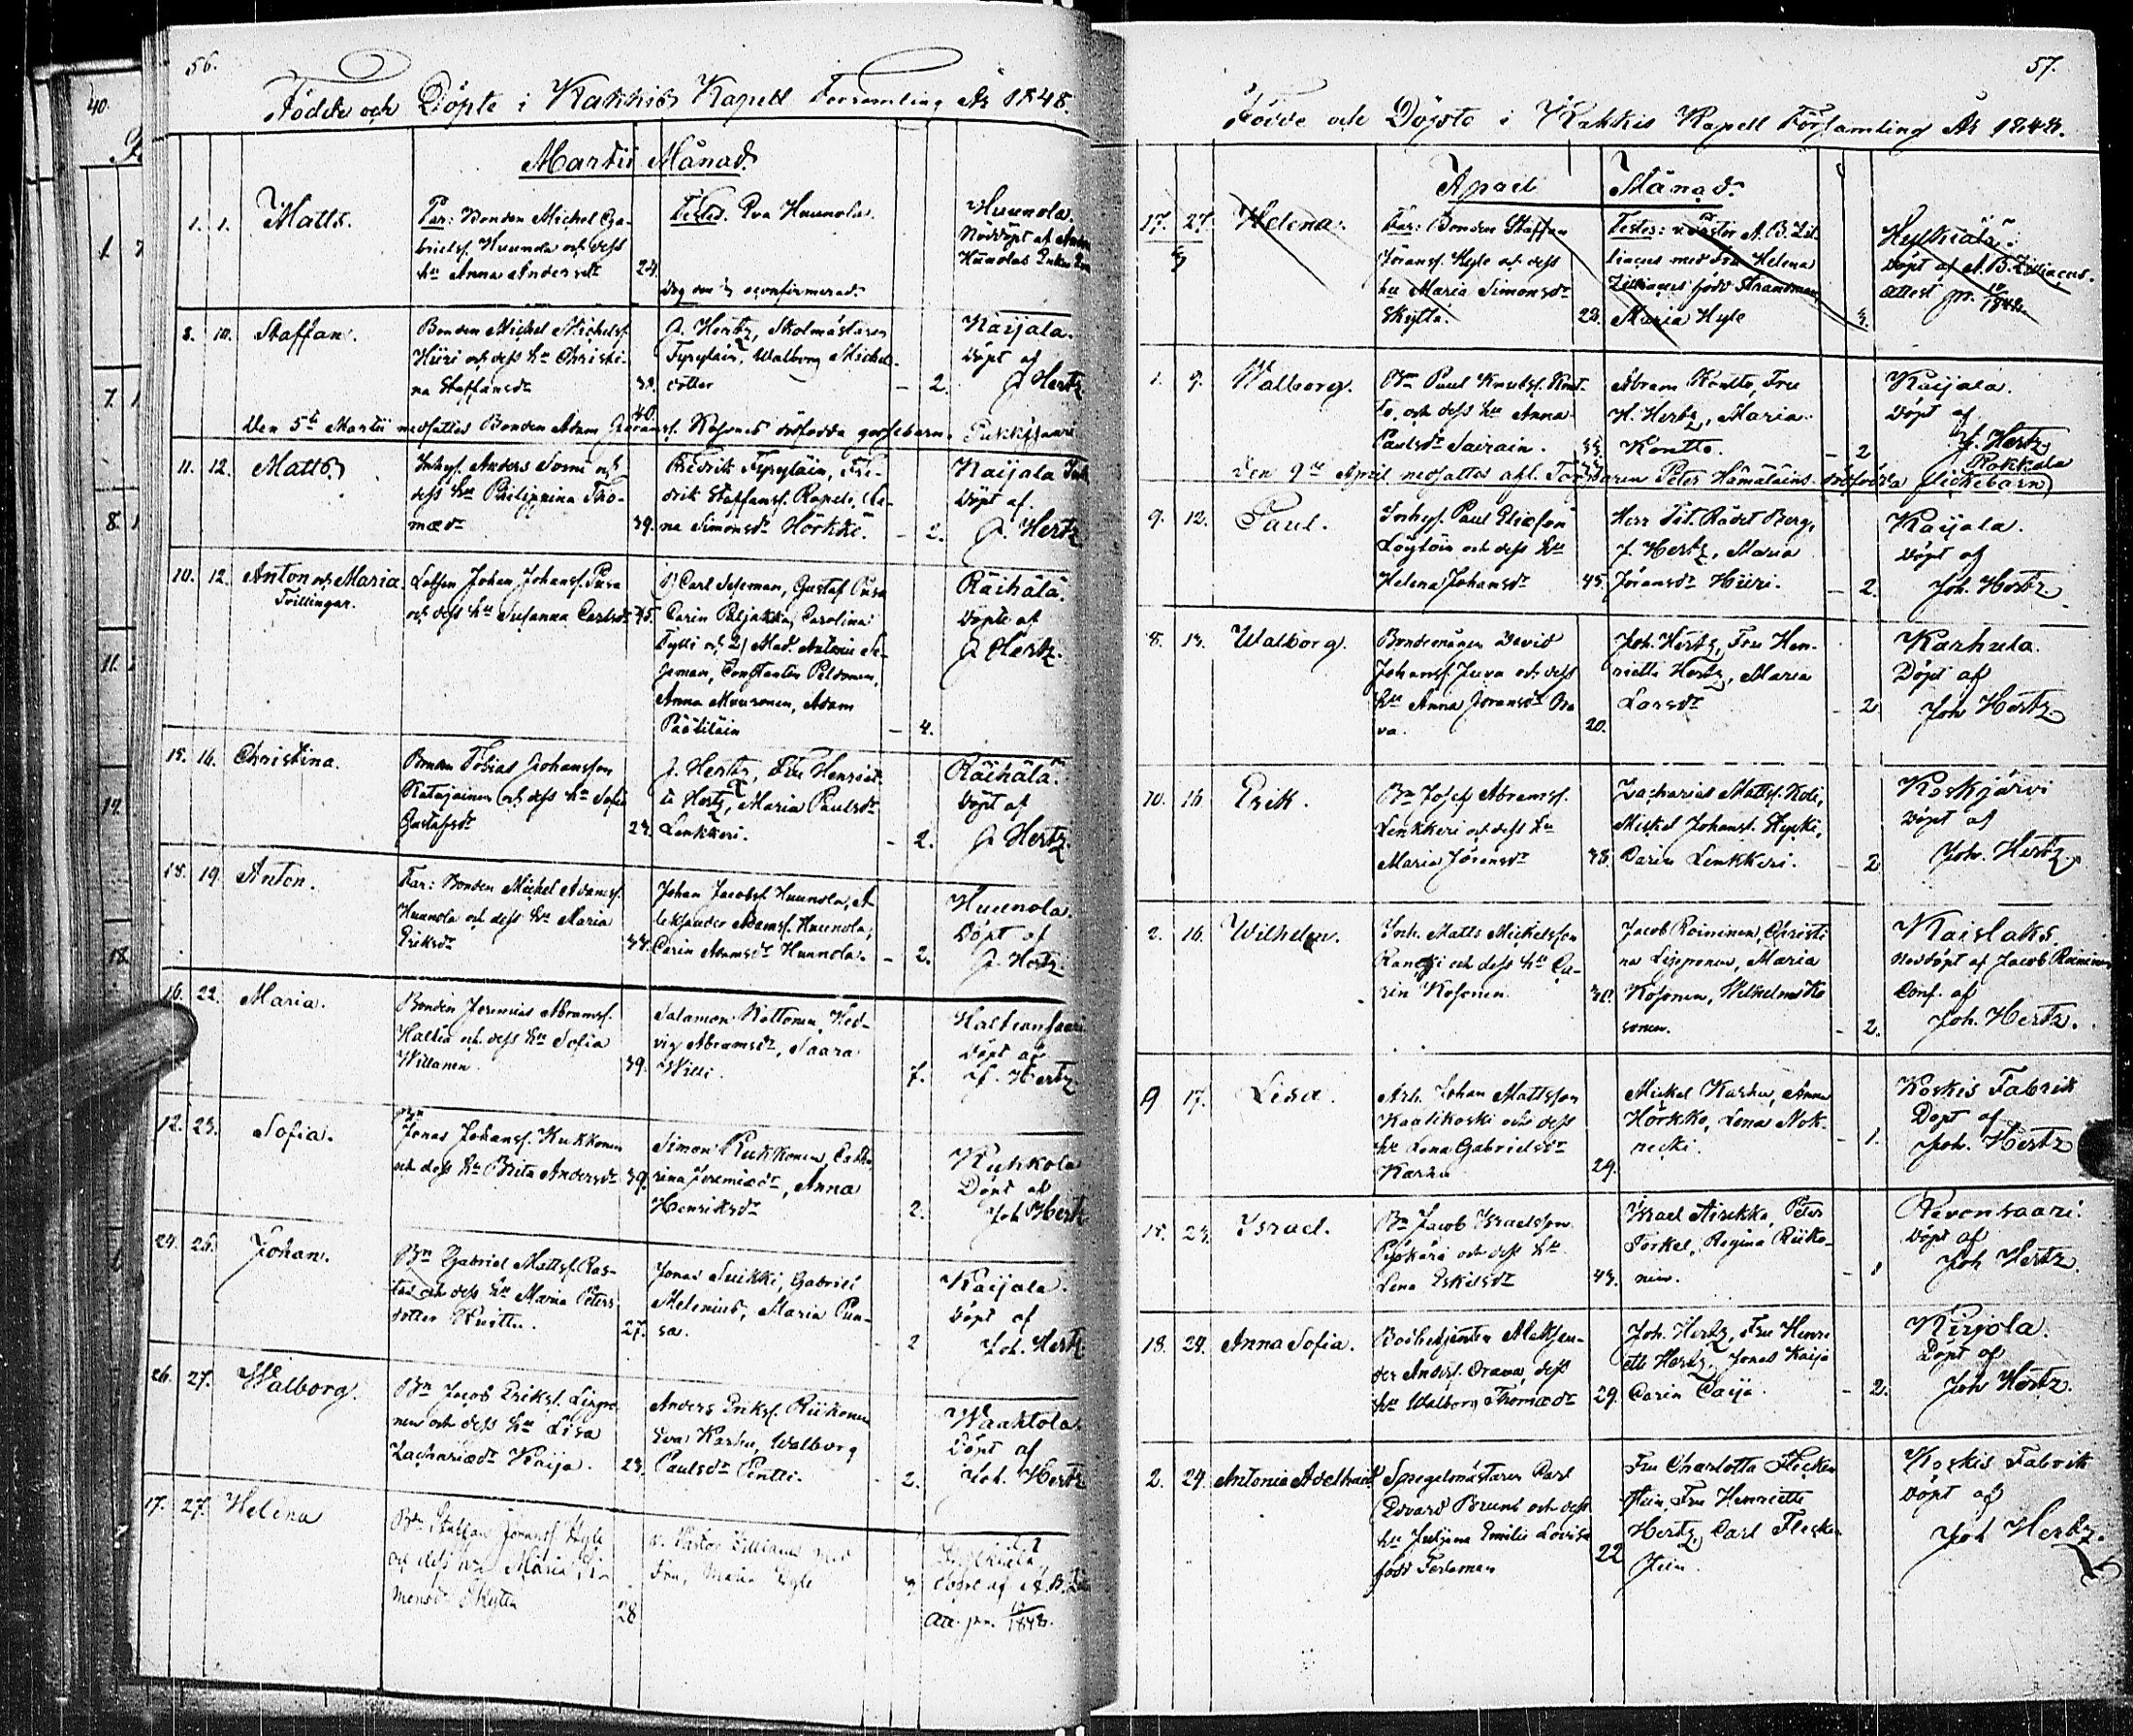 56.
Födde och Döpte i Kakkis Kapell Församling År 1848.
Martii Månad.
1. 1. Matts. Far: Bonden Michel Ga-
brielss. Huunola och dess
hu Anna Andersdr 24.
Testes. Eva Huunola.
Huunola.
Nöddöpt af
Huunolas Enka
8. 10. Staffan. Bonden Michel Michelss.
Hiiri och dess hu Christi-
na Staffansdr
J. Hertz, Skolmästaren
Walborg Michels-
dotter – 2.
Kaijala.
Döpt af
J. Hertz
40.
Den 5te Martii nedsattes Bonden Adam Göranss. Kosonens dödfödda gossebarn. Pukkisaari
11. 12. Matts Inhys. Anders Sormi och
dess hu Philippina Tho-
mædr 39.
Fredrik Fyryläin, Fre-
drik Staffanss. Rapeli, Le-
na Simonsdr Hörkkö. – 2.
Kaijala
Döpt af.
J. Hertz
10. 12. Anton och Maria
Tvillingar.
Lotsen Johan Johanss. Pusa
och dess hu Susanna Carlsdr 45.
1) Carl Seseman, Gustaf Pusa
Carin Paljakka, Carolina
Tylli och 2) Mad. Antonie Se-
seman, Constantin Peldonen,
Anna Muuronen, Adam
Päätiläin – 4.
Räihälä.
Döpte af
J. Hertz.
15. 16. Christina. Bonden Tobias Johansson
Katajainen och dess hu Sofia
Gustafsdr 23.
J. Hertz, Fru Henriet-
te Hertz, Maria Paulsdr
Lenkkeri. – 2.
Räihälä.
Döpt af
J. Hertz.
18. 19. Anton. Far: Bonden Michel Adamss.
Huunola och dess hu Maria
Eriksdr
Johan Jacobss. Huunola, A-
leksander Adamss. Huunola,
Carin Adamsdr Huunola. – 2.
Huunola.
Döpt af
J. Hertz.
16. 22. Maria. Bonden Jeremias Abramss.
Haltia och dess hu Sofia
Willanen 39.
Salamon Kottonen, Hed-
vig Abramsdr, Saara
Willi. 7.
Haltiansaari
Döpt af
J. Hertz
12. 23. Sofia. Bn
Jonas Johanss. Kukkonen
och dess hu Brita Andersdr 39.
Simon Kukkonen, Catha-
rina Jeremiædr, Anna
Henriksdr 2.
Kuhkola
Döpt af
Joh. Hertz
24. 26. Johan. Bn Gabriel Mattss. Ras-
tas och dess hu Maria Peters-
dotter Kuittu. 27.
Jonas Suikki, Gabriel
Melenius, Maria Puu-
sa. – 2
Kaijala.
Döpt af
Joh. Hertz.
26. 27. Walborg. Bn Jacob Erikss. Lippo-
nen och dess hu Lisa
Zachariædr Kaija. 23.
Anders Erikss. Riikonen
Eva Karhu, Walborg
Paulsdr Pentti. 2.
Waahtola.
Döpt af
Joh. Hertz
17. 27. Helena Bn Staffan Jöranss. Hyle
och dess hu Maria Si-
monsdr Skyttä 28
v. Pastor Zilliacus med
Fru, Maria Hyle 3
Döpt af A. B.
Att. pr. 10/1848.
57.
Födde och Döpte i Kakkis Kapell Församling År 1848.
April Månad.
17. 27. Helena. Far: Bonden Staffan
3
Jöranss. Hyle och dess
hu Maria Simonsdr
Skytta. 28.
Testes: v. Pastor A. B. Zil-
liacus med Fru Helena
Zilliacus född Strandman
Maria Hyle 3.
Döpt af A. B. Zilliacus.
Attest pr. 10/1848.
1. 9. Walborg. Bn Paul Knutss. Kont-
to, och dess hu Anna
Paulsdr Sairain.
Abram Kontto, Fru
H. Hertz, Maria
Kontto. – 2
Kaijala.
Döpt af
J. Hertz
Rokkala
Den 9de April nedsattes afl. Torparen Peter Hämäläins dödfödda flickebarn
9. 12. Paul. Inhys. Paul Eliæson
Löytöin och dess hu
Helena Johansdr 45.
Herr Tit. Rådet Berg,
J. Hertz, Maria
Jöransdr Hiiri. – 2.
Kaijala.
Döpt af
Joh. Hertz.
8. 13. Walborg. Bondemågen David
Johanss. Juva och dess
hu Anna Jöransdr Ora
va. 20.
Joh. Hertz, Fru Hen-
riette Hertz, Maria
Larsdr – 2
Karhula.
Döpt af
Joh Hertz.
10. 16. Erik. Bn Josef Abramss.
Lenkkeri och dess hu
Maria Jöransdr 38.
Zacharias Mattss. Koli,
Mickel Johanss. Hyski,
Carin Lenkkeri. – 2
Koskjärvi
Döpt af
Joh. Hertz.
2. 16. Wilhelm. Inh. Matts Mickelsson
och dess hu Ca-
rin Kosonen
Jacob Roininen, Christi
na Lipponen, Maria
Kosonen, Wilhelm Ko
sonen. – 2.
Kaislaks.
Nöddöpt af Jacob Roininen
Conf. af
Joh. Hertz.
9 17. Lisa. Arb. Johan Mattsson
Kaulikoski och dess
hu Lena Gabrielsdr
Karhu 29.
Mickel Karhu, Anna
Hörkkö, Lena Nok-
– 1.
Koskis Fabrik
Döpt af
Joh. Hertz
15. 23. Israel. Bn Jacob Israelsson
och dess hu
Lena Eskilsdr 43.
Israel Airikka, Peter
Torkel, Regina Riiko-
nen. – 1
Revonsaari.
Döpt af
Joh Hertz.
18. 24. Anna Sofia. Aleksan-
der Anderss. Orava, dess
hu Walborg Thomædr 29.
Joh. Hertz, Fru Henri
ette Hertz, Jonas Kaija
Carin Caija. – 2.
Kirjola.
Döpt af
Joh Hertz.
2. 24. Antonia Adelhaid Spegelmästaren Carl
Edvard Bruns och dess
hu Julijana Emilie Lovisa
född Terleman 22
Fru Charlotta Flecken
stein, Fru Henriette
Hertz, Carl Flecken
stein.
Koskis Fabrik
Döpt af
Joh Hertz.